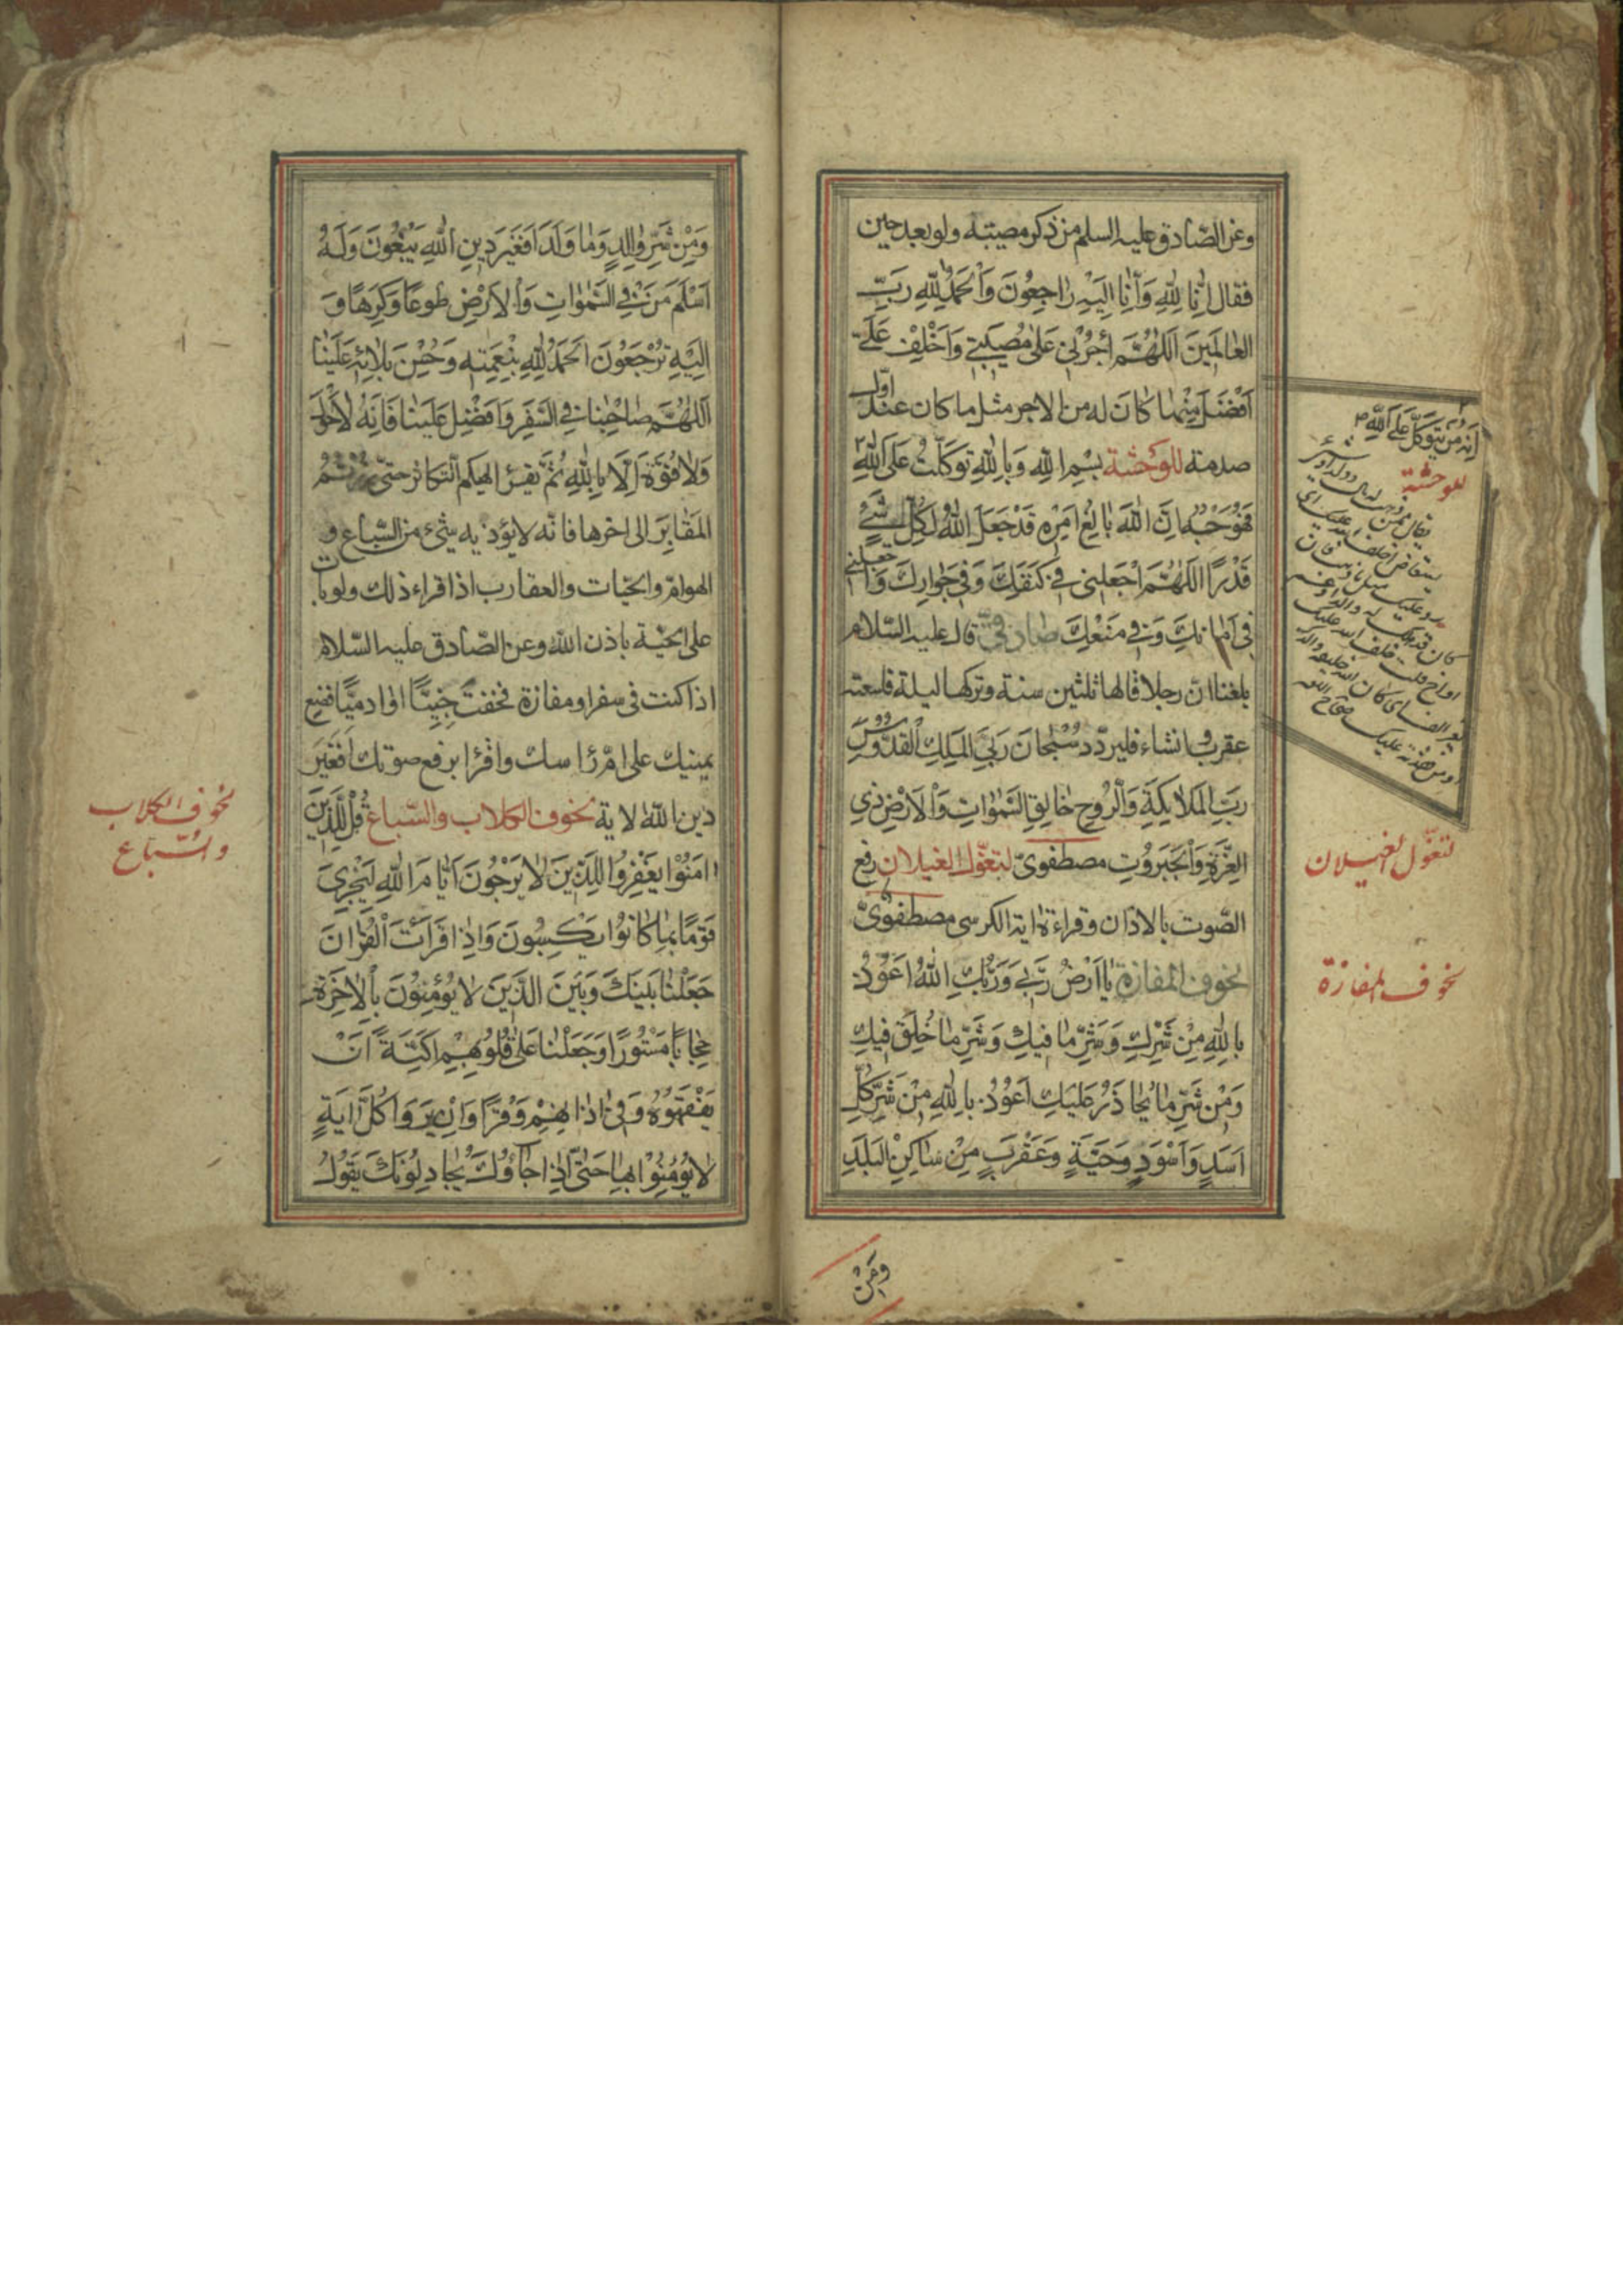 وعن الصّادق عليه السلم من ذكر مصيبته ولو بعد حين
فقال اِنّا لِلّٰهِ وَاِنّا اِلَيْهِ رٰاجِعُونَ وَاَلْحَمْدُ لِلّٰهِ رَبِّ
العٰالَمِينَ اَللّٰهُمَّ اْجُرْنِي عَلىٰ مُصِيبَتِي وَاَخْلِفْ عَلَيَّ
اَفْضَلَ مِنْهٰا كانَ له من الاجر مثل ما كان عند اوّل
صدمة للوَحْشة بِسْمِ اللّٰهِ وَبِاللّٰهِ تَوَكَّلْتُ عَلَى اللّٰهِ
فَهُوَ حَسْبُهُ اِنَّ اللّٰهَ بٰالِغُ اَمْرِهِ قَدْ جَعَلَ اللّٰهُ لِكُلِّ شَيْءٍ
قَدْرًا اَللّٰهُمَّ اجْعَلْنِي فِي كَنَفِكَ وَفِي جِوٰارِكَ وَاجْعَلْنِي
فِي اَمٰانِكَ وَفِي مَنْعِكَ صادقيّ قال عليه السّلام
بلغنا انّ رجلا قالها ثلثين سنة وتركها ليلة فلسعته
عقرب وانشاء فليردّد سُبْحٰانَ رَبِّيَ المَلِكِ الْقُدُّوسِ
رَبِّ المَلائِكَةِ وَالرُّوحِ خٰالِقِ السَّمٰوٰاتِ وَالْاَرْضِ ذِي
العِزَّةِ وَالْجَبَرُوتِ مصطفويّ لتغوّل الغيلان رفع
الصّوت بالاذان وقراءة اية الكرسى مصطفويّ
لخوف المفازة يٰا اَرْضُ رَبِّي وَرَبُّكِ اللّٰهُ اَعُوذُ
بِاللّٰهِ مِنْ شَرِّكِ وَشَرِّ مٰا فِيكِ وَشَرِّ مٰا خُلِقَ فِيكِ
وَمِنْ شَرِّ مٰا يُحٰاذَرُ عَلَيْكِ اَعُوذُ بِاللّٰهِ مِنْ شَرِّ كُلِّ
اَسَدٍ وَاَسْوَدٍ وَحَيَّةٍ وَعَقْرَبٍ مِنْ سٰاكِنِ البَلَدِ
وَمِنْ
اِنَّه مَنْ يَتَوَكَّلْ عَلَى اللّٰهِ
للوحشة
لتغوّل الغيلان
لخوف المفازة
وَمِنْ شَرِّ وٰالِدٍ وَمٰا وَلَدَ اَفَغَيْرَ دِينِ اللّٰهِ يَبْغُونَ وَلَهُ
اَسْلَمَ مَنْ فِي السَّمٰوٰاتِ وَالْاَرْضِ طَوعًا وَكَرْهًا وَ
اِلَيْهِ تُرْجَعُونَ اَلحَمْدُ لِلّٰهِ بِنِعْمَتِهِ وَحُسْنِ بَلائِهِ عَلَيْنٰا
اَللّٰهُمَّ صٰاحِبْنٰا فِي السَّفَرِ وَاَفْضِلْ عَلَيْنٰا فَاِنَّهُ لٰا حَوْلَ
وَلٰا قُوَّةَ اِلّا بِاللّٰهِ ثُمَّ يقرء الهيكم التكاثر حتى زرتم
المَقٰابِرَ الى اخرها فانّه لا يؤذيه شىء من السّباع و
الهوامّ والحيّات والعقارب اذا قراء ذلك ولو بات
على الحيّة باذن اللّٰه وعن الصّادق عليه السّلام
اذا كنت فى سفر او مفازة فخفت جِنِّيًّا او ادميًّا فضع
يمينك على امّ رٔاسك واقْرٔا برفع صوتك اَفَغَيْرَ
دين اللّٰه الاية لخوف الكلاب والسّباع قُلْ لِلَّذِينَ
اٰمَنُوْا يَغْفِرُوا لِلَّذِينَ لٰا يَرْجُونَ اَيّٰامَ اللّٰهِ لِيَجْزِيَ
قَوْمًا بِمٰا كٰانُوْا يَكْسِبُونَ وَاِذٰا قَرَأْتَ الْقُرْاٰنَ
جَعَلْنٰا بَيْنَكَ وَبَيْنَ الَّذِينَ لا يُؤْمِنُونَ بِالْاٰخِرَةِ
حِجٰابًا مَسْتُورًا وَجَعَلْنٰا عَلىٰ قُلُوبِهِمْ اَكِنَّةً اَنْ
يَفْقَهُوهُ وَفِي اٰذٰانِهِمْ وَقْرًا وَاِنْ يَرَوْا كُلَّ اٰيَةٍ
لٰا يُؤْمِنُوْا بِهٰا حَتّٰى اِذٰا جٰاؤُكَ يُجٰادِلُونَكَ يَقُولُ
لخوف الكلاب
والسّباع